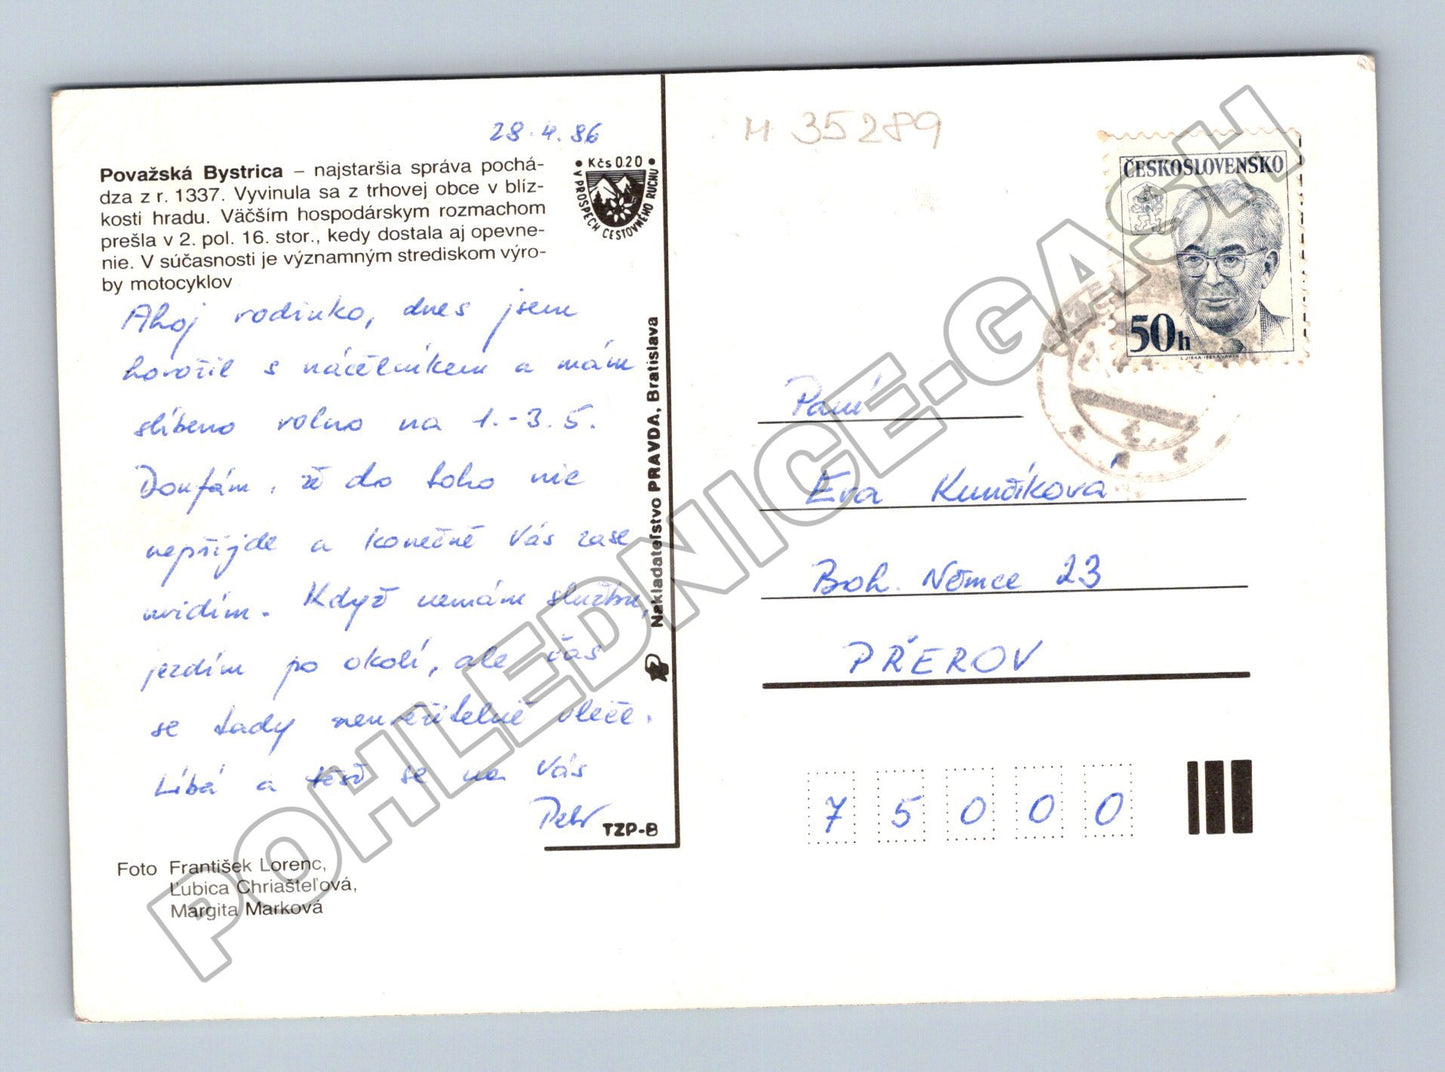 28.4.86
Považská Bystrica – najstaršia správa pochá-
dza z r. 1337. Vyvinula sa z trhovej obce v blíz-
kosti hradu. Väčším hospodárskym rozmachom
prešla v 2. pol. 16. stor., kedy dostala aj opevne-
nie. V súčasnosti je významným strediskom výro-
by motocyklov
• Kčs 0.20 •
V PROSPECH CESTOVNÉHO RUCHU
Ahoj rodinko, dnes jsem
hovořil s náčelníkem a mám
slíbeno volno na 1.-3.5.
Doufám, že do toho nic
nepřijde a konečně Vás zase
uvidím. Když nemám službu,
jezdím po okolí, ale čas
se tady neuvěřitelně vleče.
Líbá a těší se na Vás
Petr
TZP-B
Foto František Lorenc,
Ľubica Chriašteľová,
Margita Marková
Nakladateľstvo PRAVDA, Bratislava
M 35289
ČESKOSLOVENSKO
50h
Paní
Eva Kunčíková
Boh. Němce 23
PŘEROV
75000
POHLEDNICE-GASH